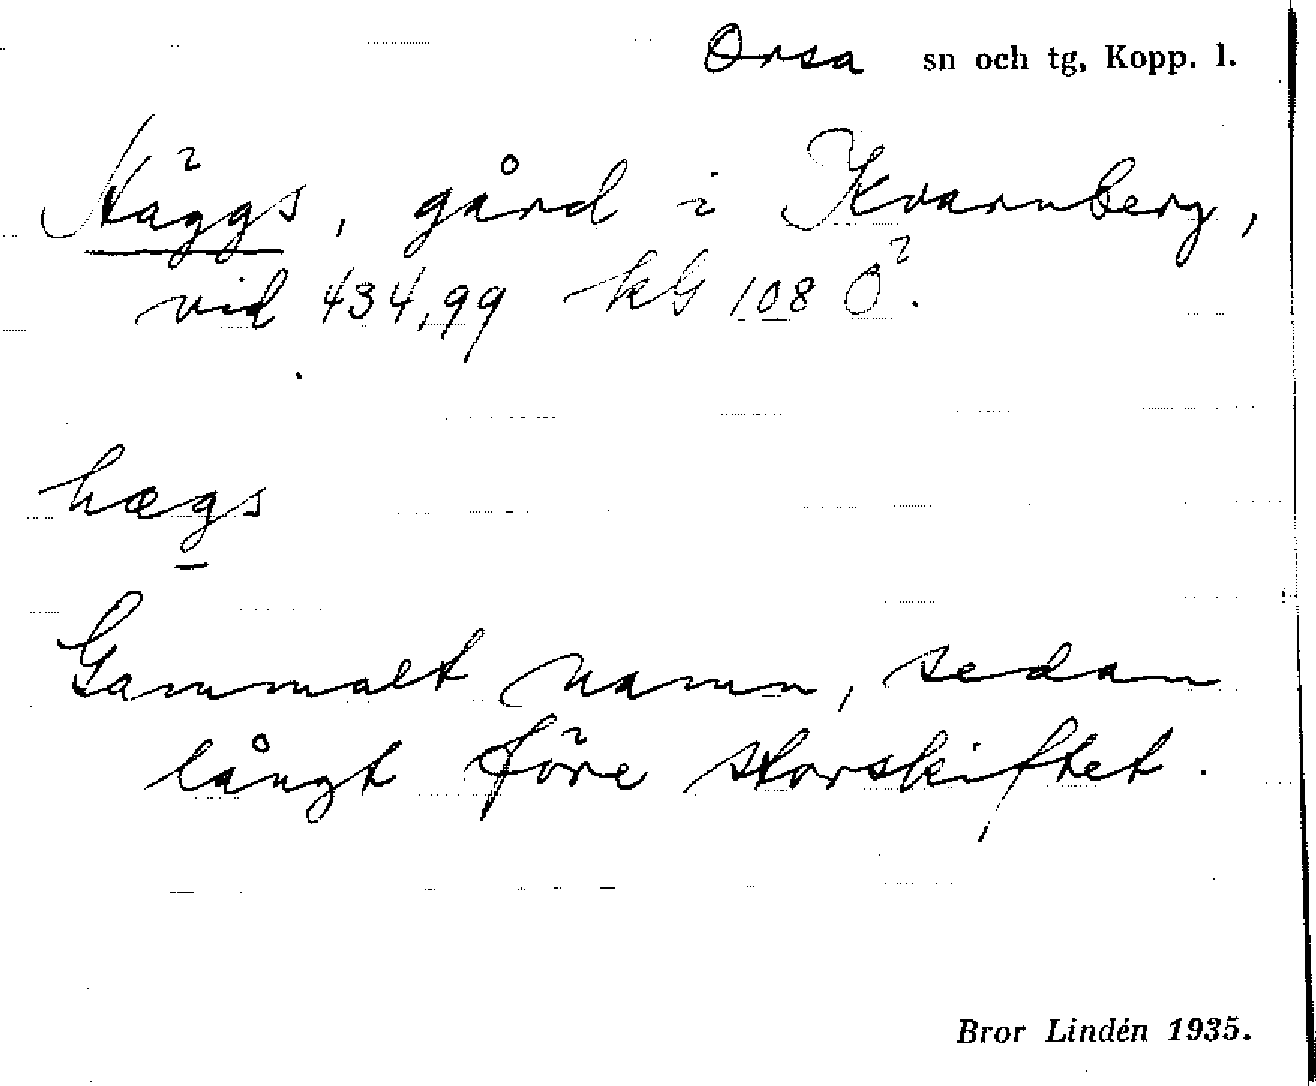 Orsa sn och tg, Kopp. l.
Häggs, gård i Kvarnberg,
vid 434,99 kG 108 Ö.
hægs
Gammalt namn, sedan
långt före storskiftet.
Bror Lindén 1935.